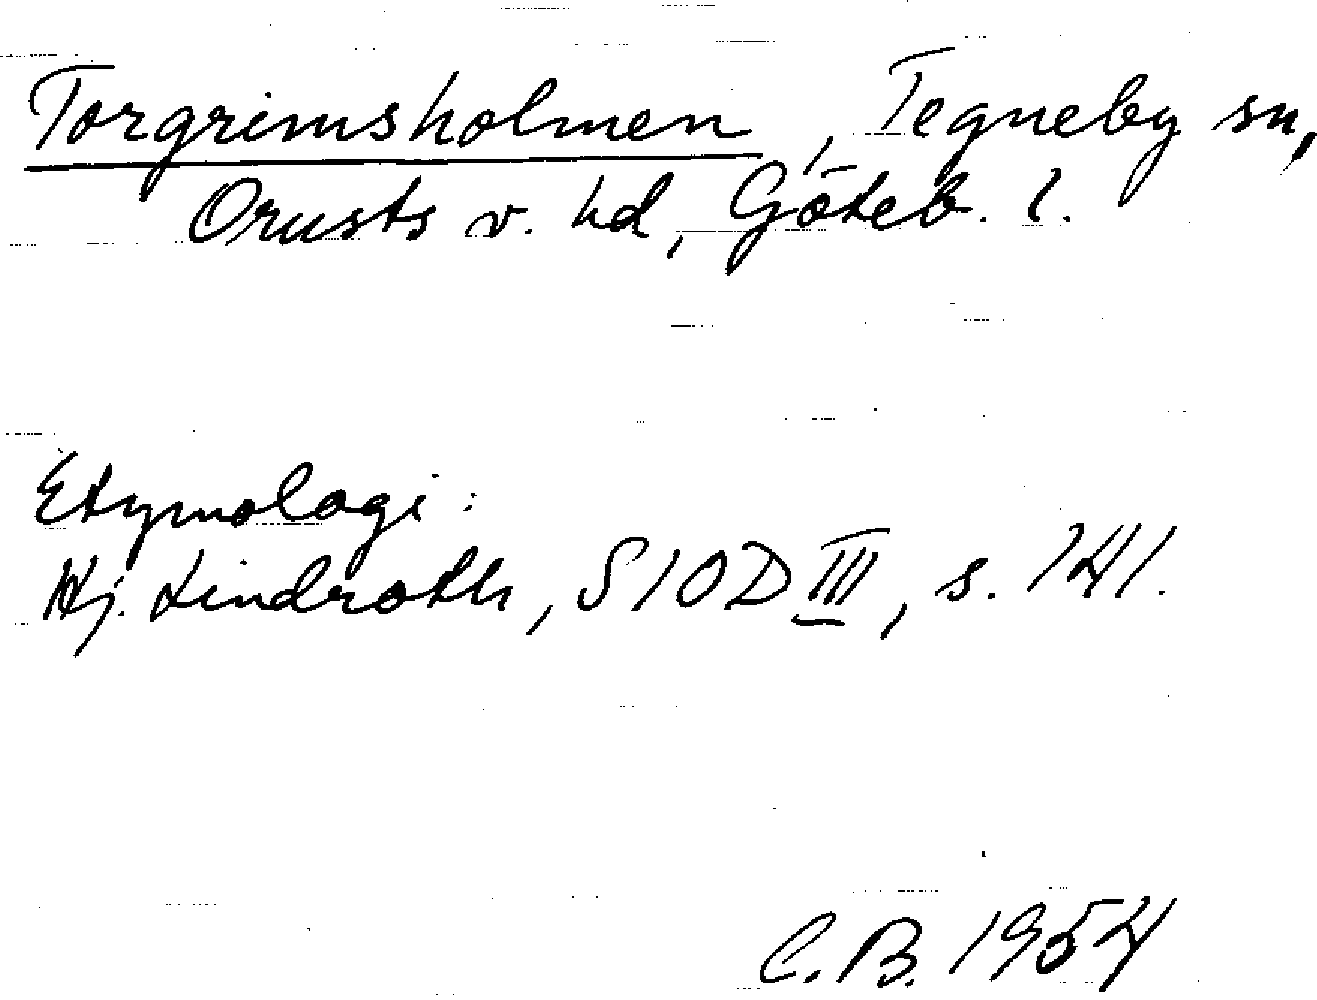 Torgrimsholmen, Tegneby sn,
Orusts v. hd, Göteb. l.
Etymologi:
Hj. Lindroth, SIOD III, s. 141.
C.B. 1954